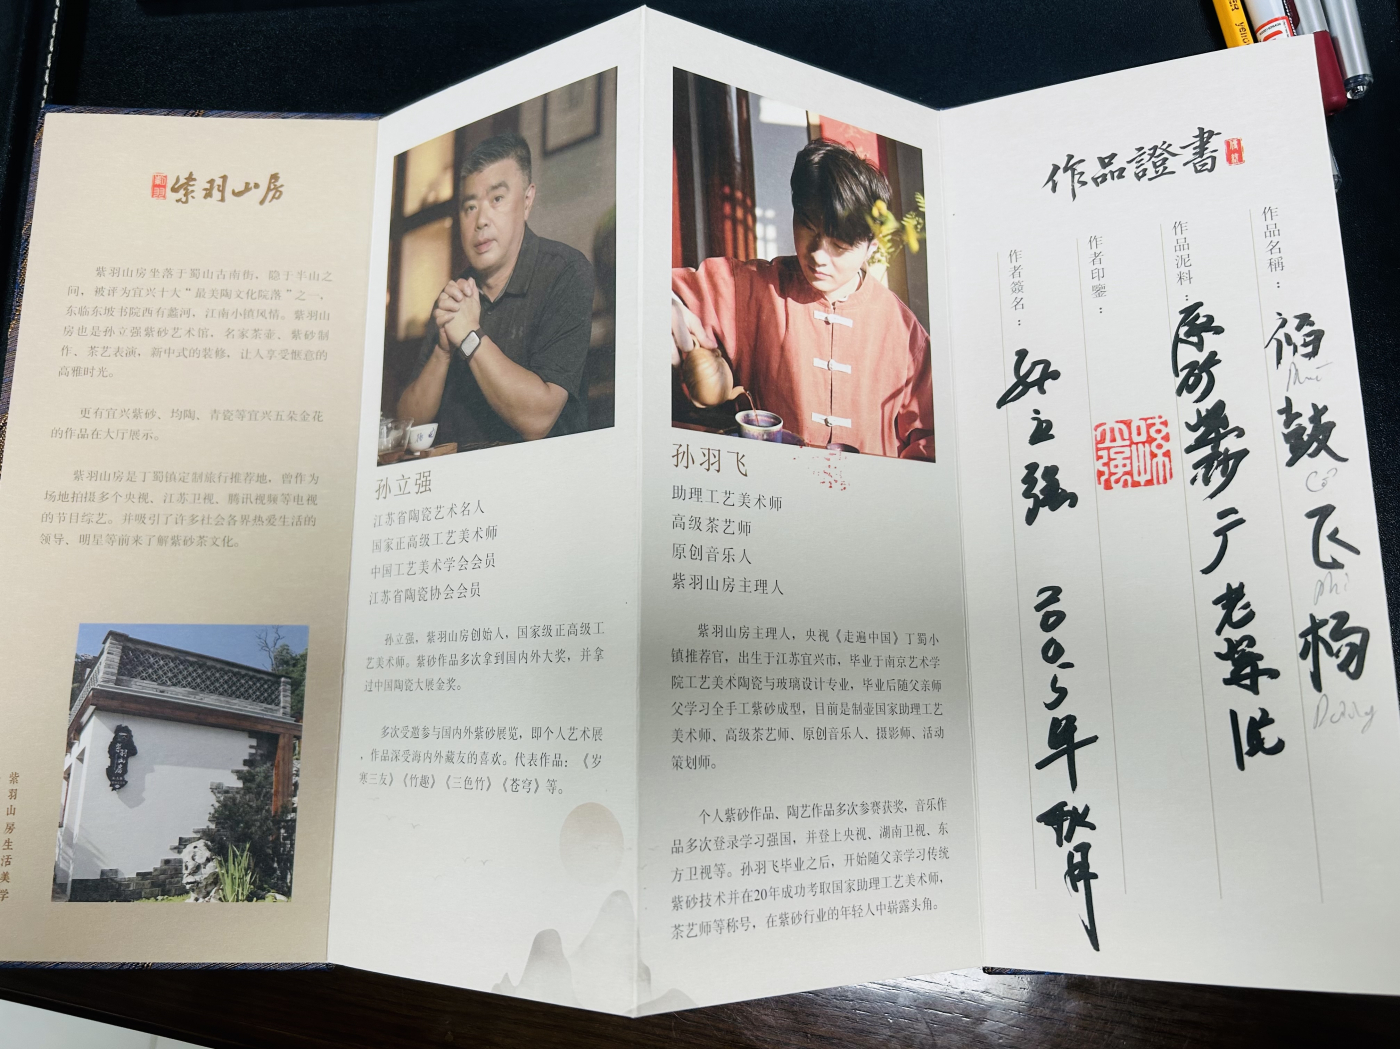 紫羽山房
紫羽山房坐落于蜀山古南街，隐于半山之
间，被评为宜兴十大“最美陶文化院落”之一，
东临东坡书院西有蠡河，江南小镇风情。紫羽山
房也是孙立强紫砂艺术馆，名家茶壶、紫砂制
作、茶艺表演，新中式的装修，让人享受惬意的
高雅时光。
更有宜兴紫砂、均陶、青瓷等宜兴五朵金花
的作品在大厅展示。
紫羽山房是丁蜀镇定制旅行推荐地，曾作为
场地拍摄多个央视、江苏卫视、腾讯视频等电视
的节目综艺。并吸引了许多社会各界热爱生活的
领导、明星等前来了解紫砂茶文化。
紫羽山房
紫羽山房生活美学
孙立强
江苏省陶瓷艺术名人
国家正高级工艺美术师
中国工艺美术学会会员
江苏省陶瓷协会会员
孙立强，紫羽山房创始人，国家级正高级工
艺美术师。紫砂作品多次拿到国内外大奖，并拿
过中国陶瓷大展金奖。
多次受邀参与国内外紫砂展览，即个人艺术展
，作品深受海内外藏友的喜欢。代表作品：《岁
寒三友》《竹趣》《三色竹》《苍穹》等。
孙羽飞
助理工艺美术师
高级茶艺师
原创音乐人
紫羽山房主理人
紫羽山房主理人，央视《走遍中国》丁蜀小
镇推荐官，出生于江苏宜兴市，毕业于南京艺术学
院工艺美术陶瓷与玻璃设计专业，毕业后随父亲师
父学习全手工紫砂成型，目前是制壶国家助理工艺
美术师、高级茶艺师、原创音乐人、摄影师、活动
策划师。
个人紫砂作品、陶艺作品多次参赛获奖，音乐作
品多次登录学习强国，并登上央视、湖南卫视、东
方卫视等。孙羽飞毕业之后，开始随父亲学习传统
紫砂技术并在20年成功考取国家助理工艺美术师，
茶艺师等称号，在紫砂行业的年轻人中崭露头角。
作品證書
作品名稱：
鼓飞杨
作品泥料：原矿紫砂厂老紫泥
作者印鑒：
作者簽名：孙立强 二〇二5年秋月